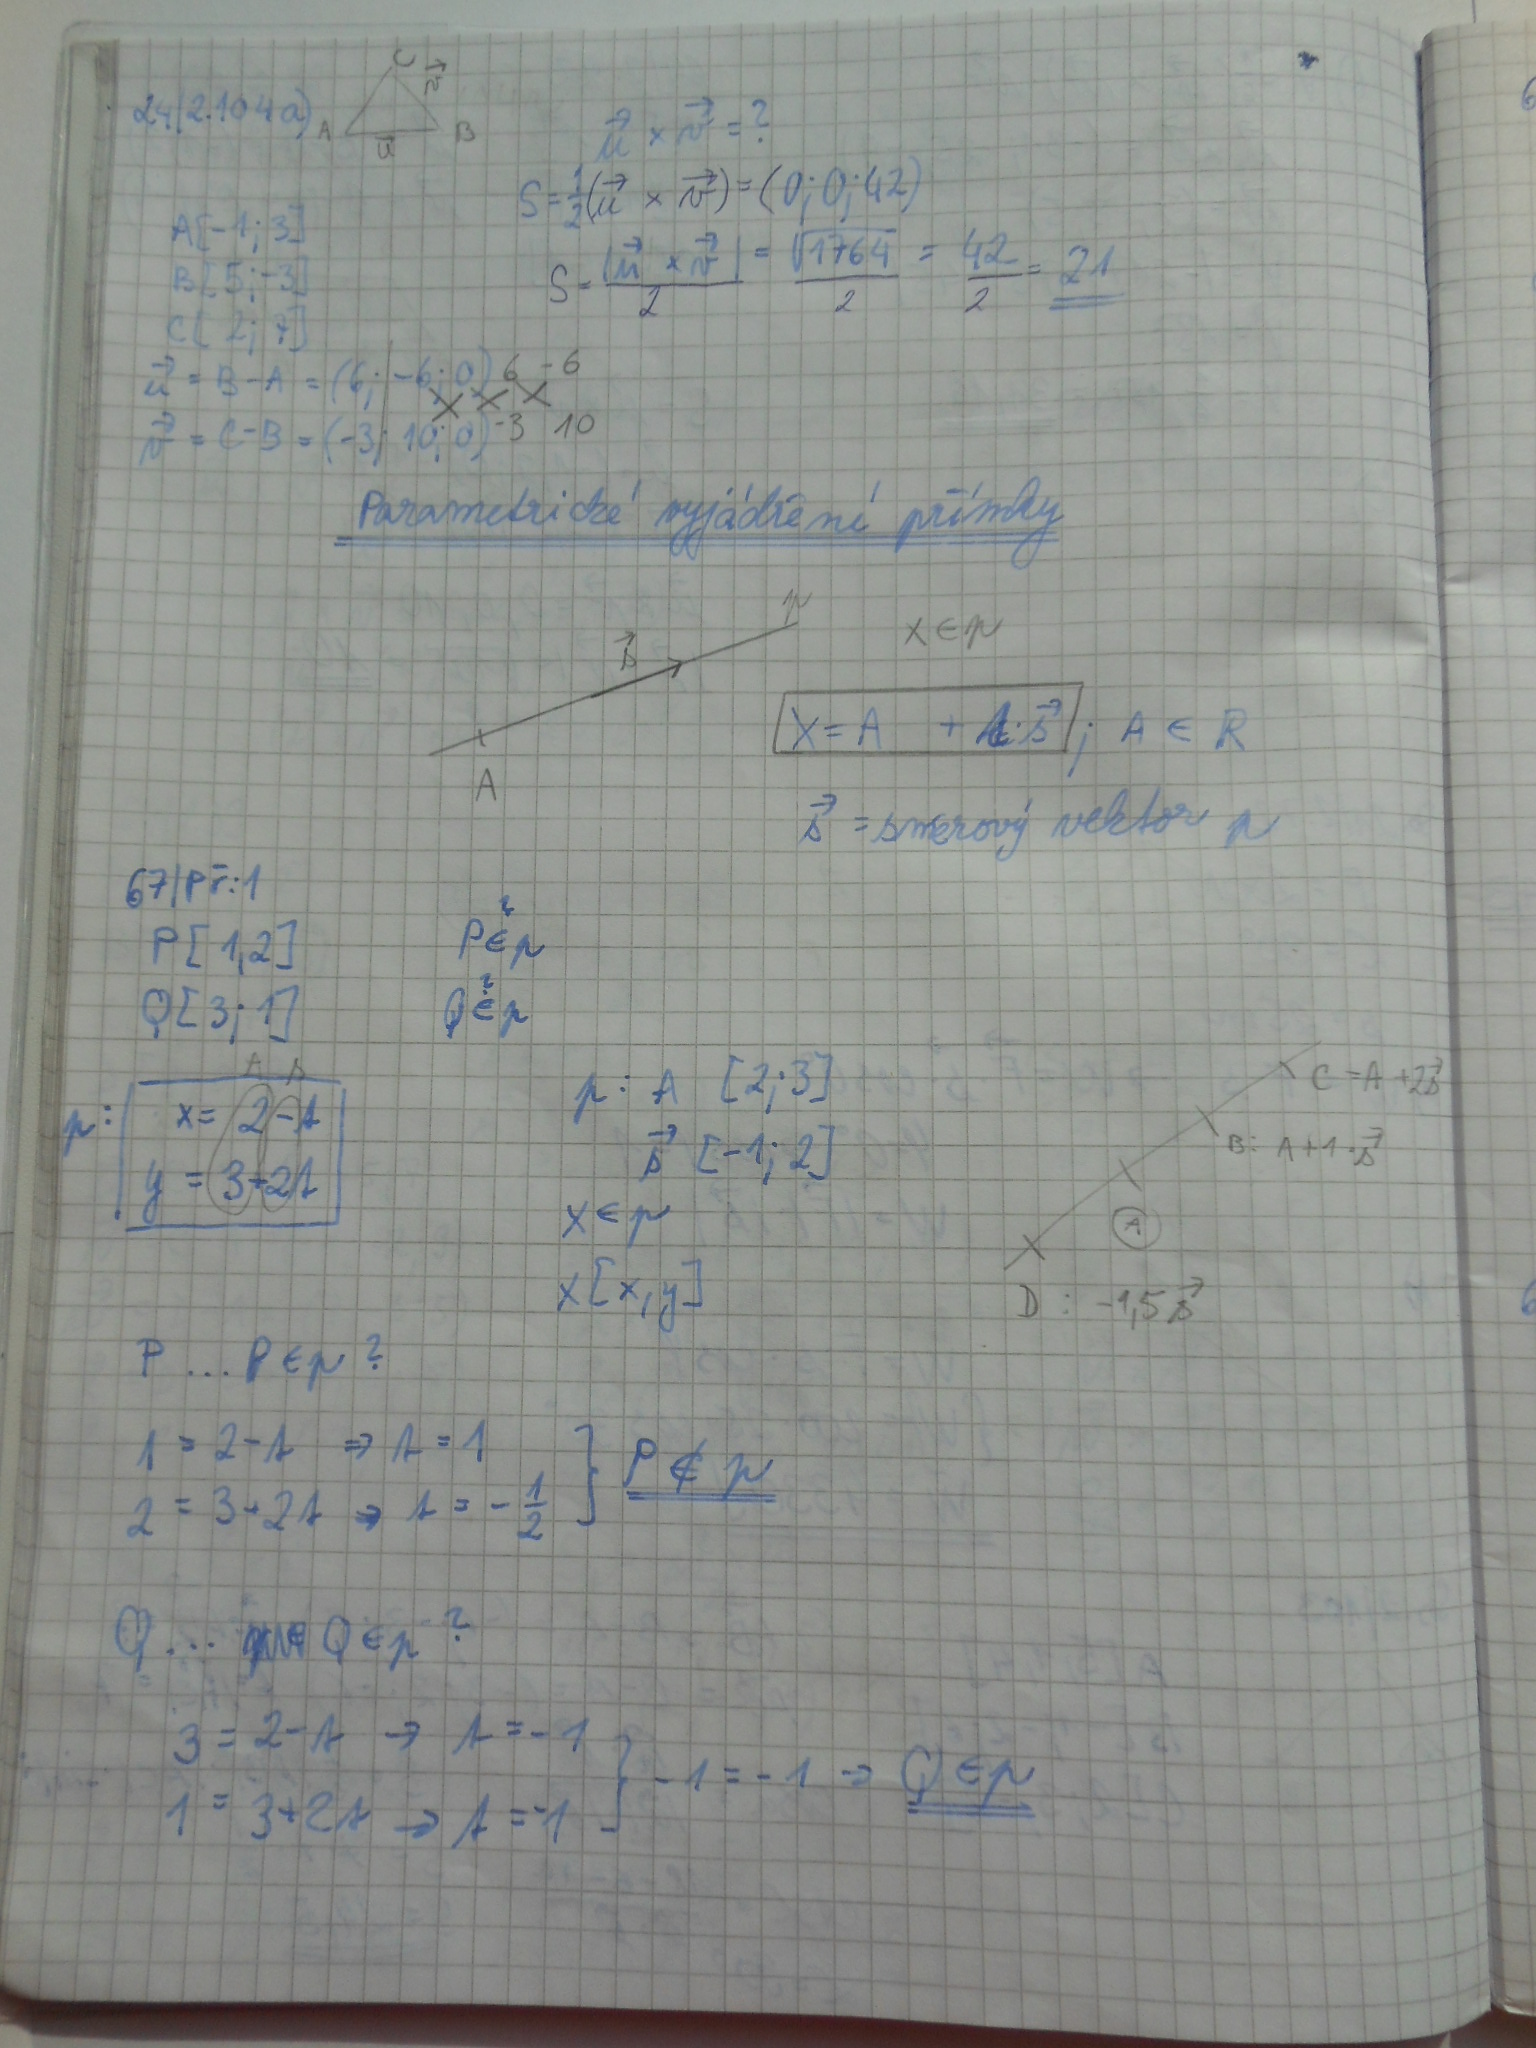 24/2.104a)
C
v⃗
A
u⃗
B
u⃗ × v⃗ = ?
S = 1/2 (u⃗ × v⃗) = (0; 0; 42)
A[-1; 3]
B[5; -3]
C[2; 7]
S = |u⃗ × v⃗|/2 = √1764/2 = 42/2 = 21
u⃗ = B-A = (6; -6; 0) 6 -6
v⃗ = C-B = (-3; 10; 0) -3 10
Parametrické vyjádření přímky
p
s⃗
A
X ∈ p
X = A + t·s⃗ ; t ∈ R
s⃗ = směrový vektor p
67/Př:1
P[1,2] P ∈? p
Q[3; 1] Q ∈? p
A s
p: x = 2-t
y = 3+2t
p: A [2; 3]
s⃗ [-1; 2]
X ∈ p
X[x, y]
C = A + 2s⃗
B: A + 1·s⃗
A
D: -1,5s⃗
P ... P ∈ p ?
1 = 2-t ⇒ t = 1
2 = 3+2t ⇒ t = -1/2 } P ∉ p
Q ... Q ∈ p ?
3 = 2-t → t = -1
1 = 3+2t → t = -1 } -1 = -1 → Q ∈ p